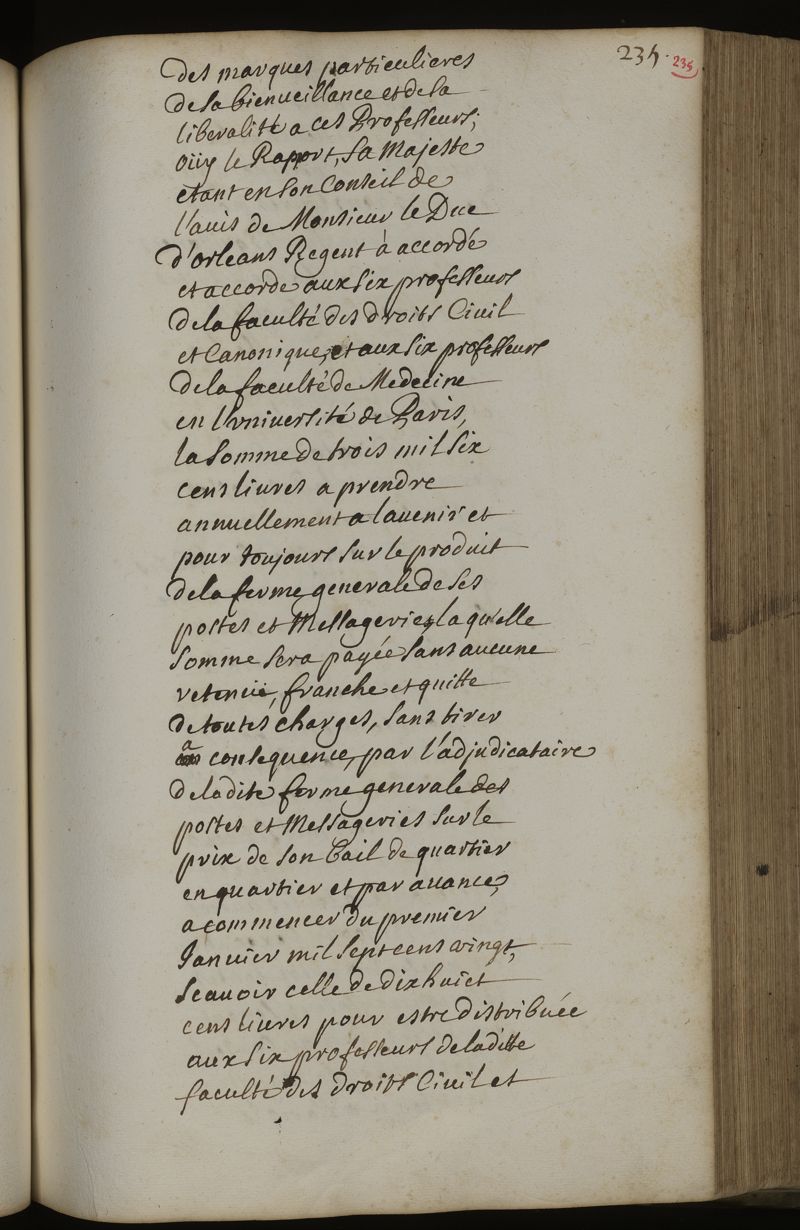 234. 235
des marques particulieres
de sa bienueillance et de sa
liberalité a ces Professeurs;
Oüy le Rapport, sa Majesté
etant en son Conseil de
l'auis de Monsieur le Duc
d'orleans Regent à accordé
et accorde aux six professeurs
de la faculté des droits Ciuil
et Canonique, et aux six professeurs
de la faculté de Medecine
en l'vniuersité de Paris,
la somme de trois mil six
cens liures a prendre
annuellement a lauenir et
pour toujours sur le produit
de la ferme generale de ses
postes et Messageries, laquelle
somme sera payée sans aucune
retenüe, franche et quitte
de toutes charges, sans tirer
a consequence, par l'adjudicataire
de ladite ferme generale des
postes et Messageries sur le
prix de son Bail de quartier
en quartier et par auance,
a commencer du premier
Januier mil sept cens vingt,
Scauoir celle de dix huict
cens liures pour estre distribuée
aux six professeurs de ladite
faculté des droits Ciuil et